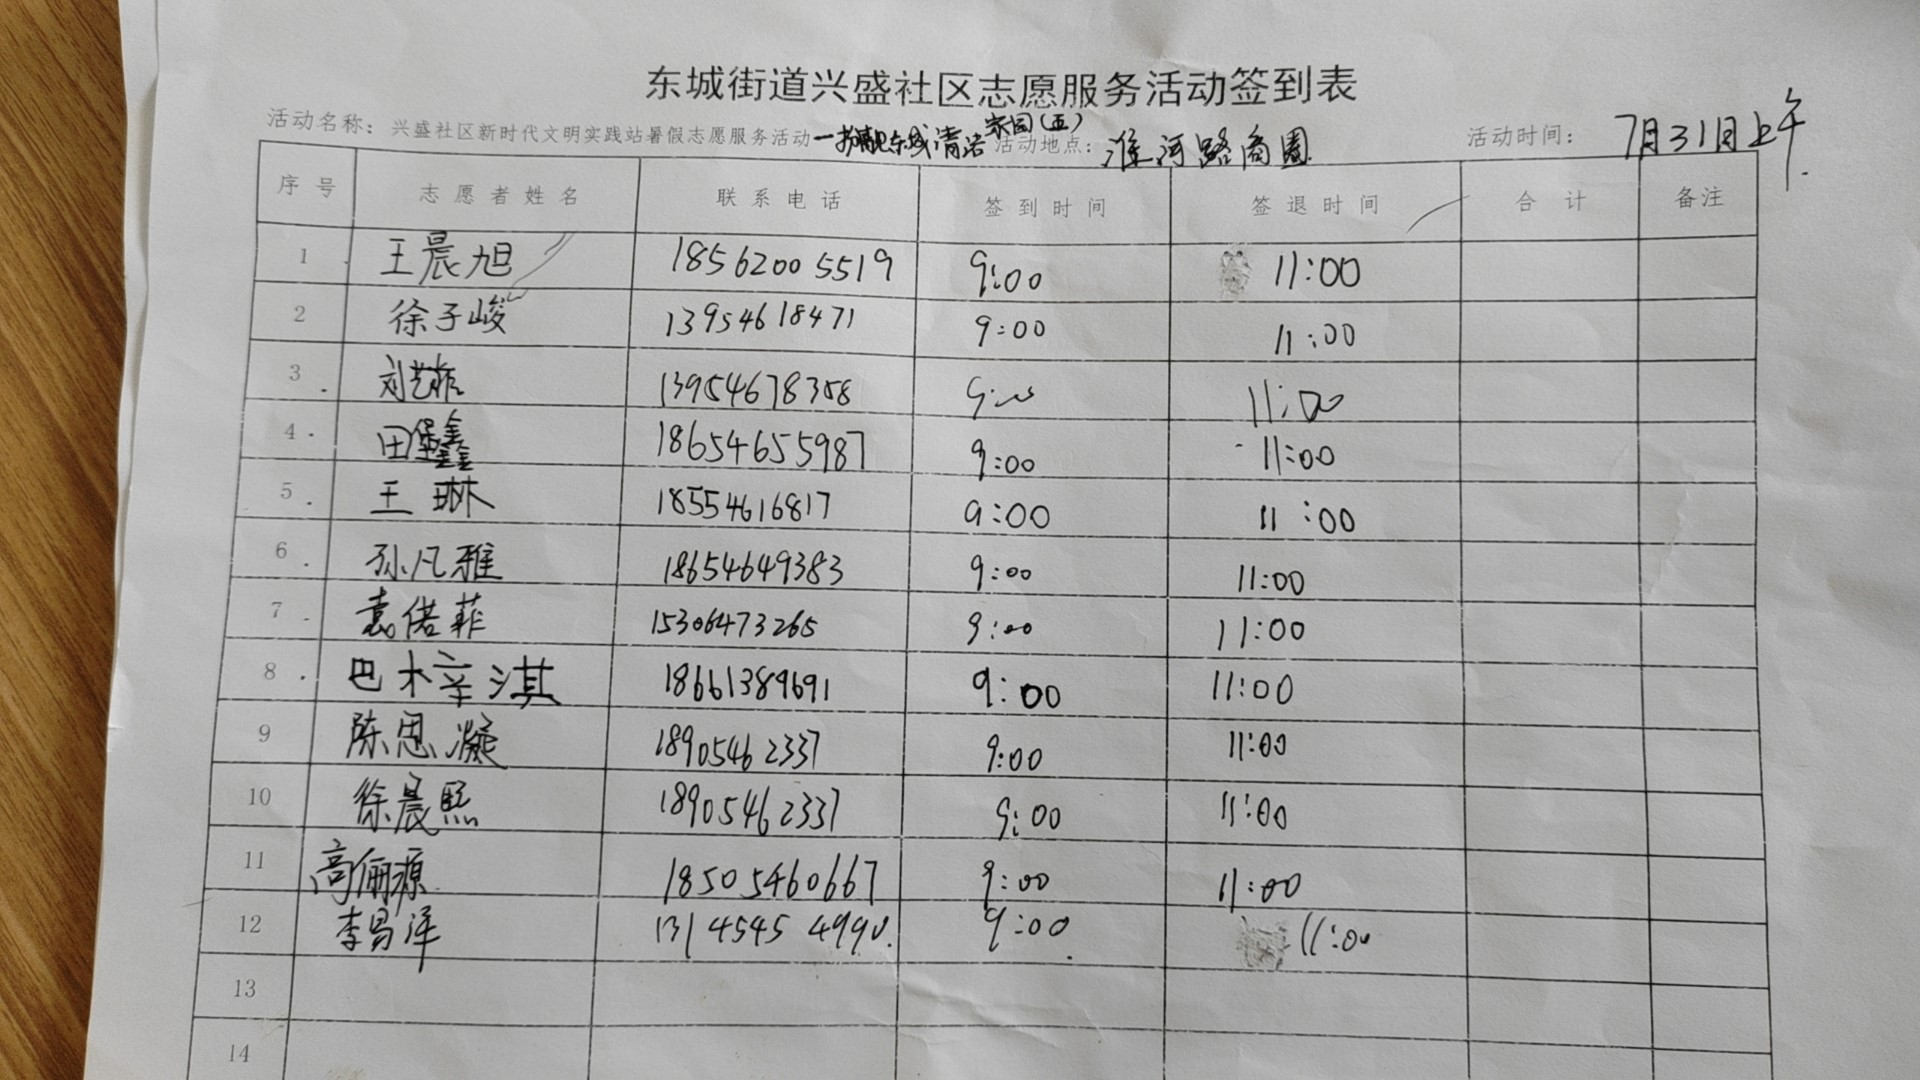 东城街道兴盛社区志愿服务活动签到表
活动名称：兴盛社区新时代文明实践站暑假志愿服务活动—扮靓东城清洁家园（五） 活动地点：淮河路商圈 活动时间：7月31日上午
序号 志愿者姓名 联系电话 签到时间 签退时间 合计 备注
1 王晨旭 18562005519 9:00 11:00
2 徐子峻 13954618471 9:00 11:00
3 刘艺菲 13954678358 9:00 11:00
4 田堡鑫 18654655987 9:00 11:00
5 王琳 18554616817 9:00 11:00
6 孙凡雅 18654649383 9:00 11:00
7 袁偌菲 15306473265 9:00 11:00
8 巴木辛淇 18661389691 9:00 11:00
9 陈思凝 18905462337 9:00 11:00
10 徐晨熙 18905462337 9:00 11:00
11 高俪源 18505460667 9:00 11:00
12 李易泽 131 4545 4990 9:00 11:00
13
14